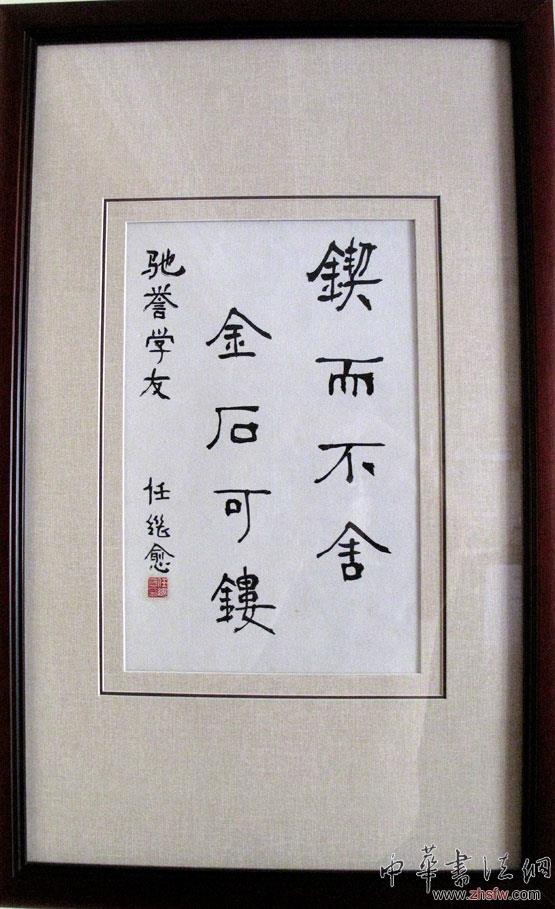 鍥而不舍
金石可鏤
驰誉学友
任继愈
中華書法網
www.zhsfw.com